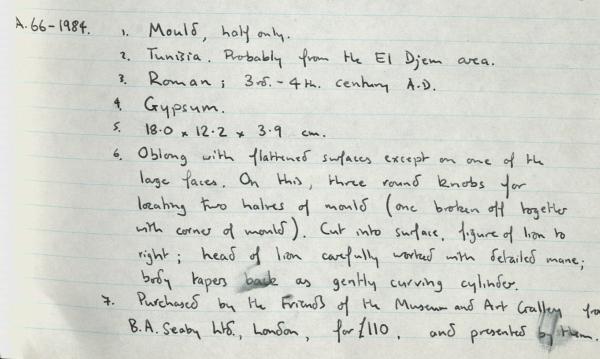 A.66-1984. 1. Mould, half only.
2. Tunisia. Probably from the El Djem area.
3. Roman; 3rd.-4th. century A.D.
4. Gypsum.
5. 18.0 x 12.2 x 3.9 cm.
6. Oblong with flattened surfaces except on one of the
large faces. On this, three round knobs for
locating two halves of mould (one broken off together
with corner of mould). Cut into surface, figure of lion to
right; head of lion carefully worked with detailed mane;
body tapers back as gently curving cylinder.
7. Purchased by the Friends of the Museum and Art Gallery
B.A. Seaby Ltd., London, for £110, and presented by them.